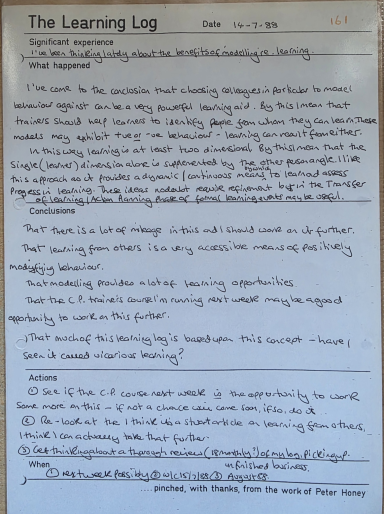 The Learning Log Date 14-7-88 161
Significant experience
I've been thinking lately about the benefits of modelling re. learning.
What happened
I've come to the conclusion that choosing colleagues in particular to model
behaviour against can be a very powerful learning aid. By this I mean that
trainers should help learners to identify people from whom they can learn. These
models may exhibit +ve or -ve behaviour - learning can result from either.
In this way learning is at least two dimensional. By this I mean that the
single (learner) dimension alone is supplemented by the other person angle. I like
this approach as it provides a dynamic / continuous means to learn and assess
progress in learning. These ideas no doubt require refinement but in the Transfer
of learning / Action Planning Phase of formal learning events may be useful.
Conclusions
That there is a lot of mileage in this and I should work on it further.
That learning from others is a very accessible means of positively
modifying behaviour.
That modelling provides a lot of learning opportunities.
That the C.P. trainers course I'm running next week may be a good
opportunity to work on this further.
That much of this learning log is based upon this concept - have I
seen it called vicarious learning?
Actions
① See if the C.P. course next week is the opportunity to work
some more on this - if not a chance will come soon, if so, do it
② Re-look at the I think it's a short article on learning from others,
I think I can actually take that further.
③ Get thinking about a thorough review (18 monthly?) of my log, picking up
unfinished business.
When ① next week possibly ② w/c 15/7/88 ③ August 88.
....pinched, with thanks, from the work of Peter Honey